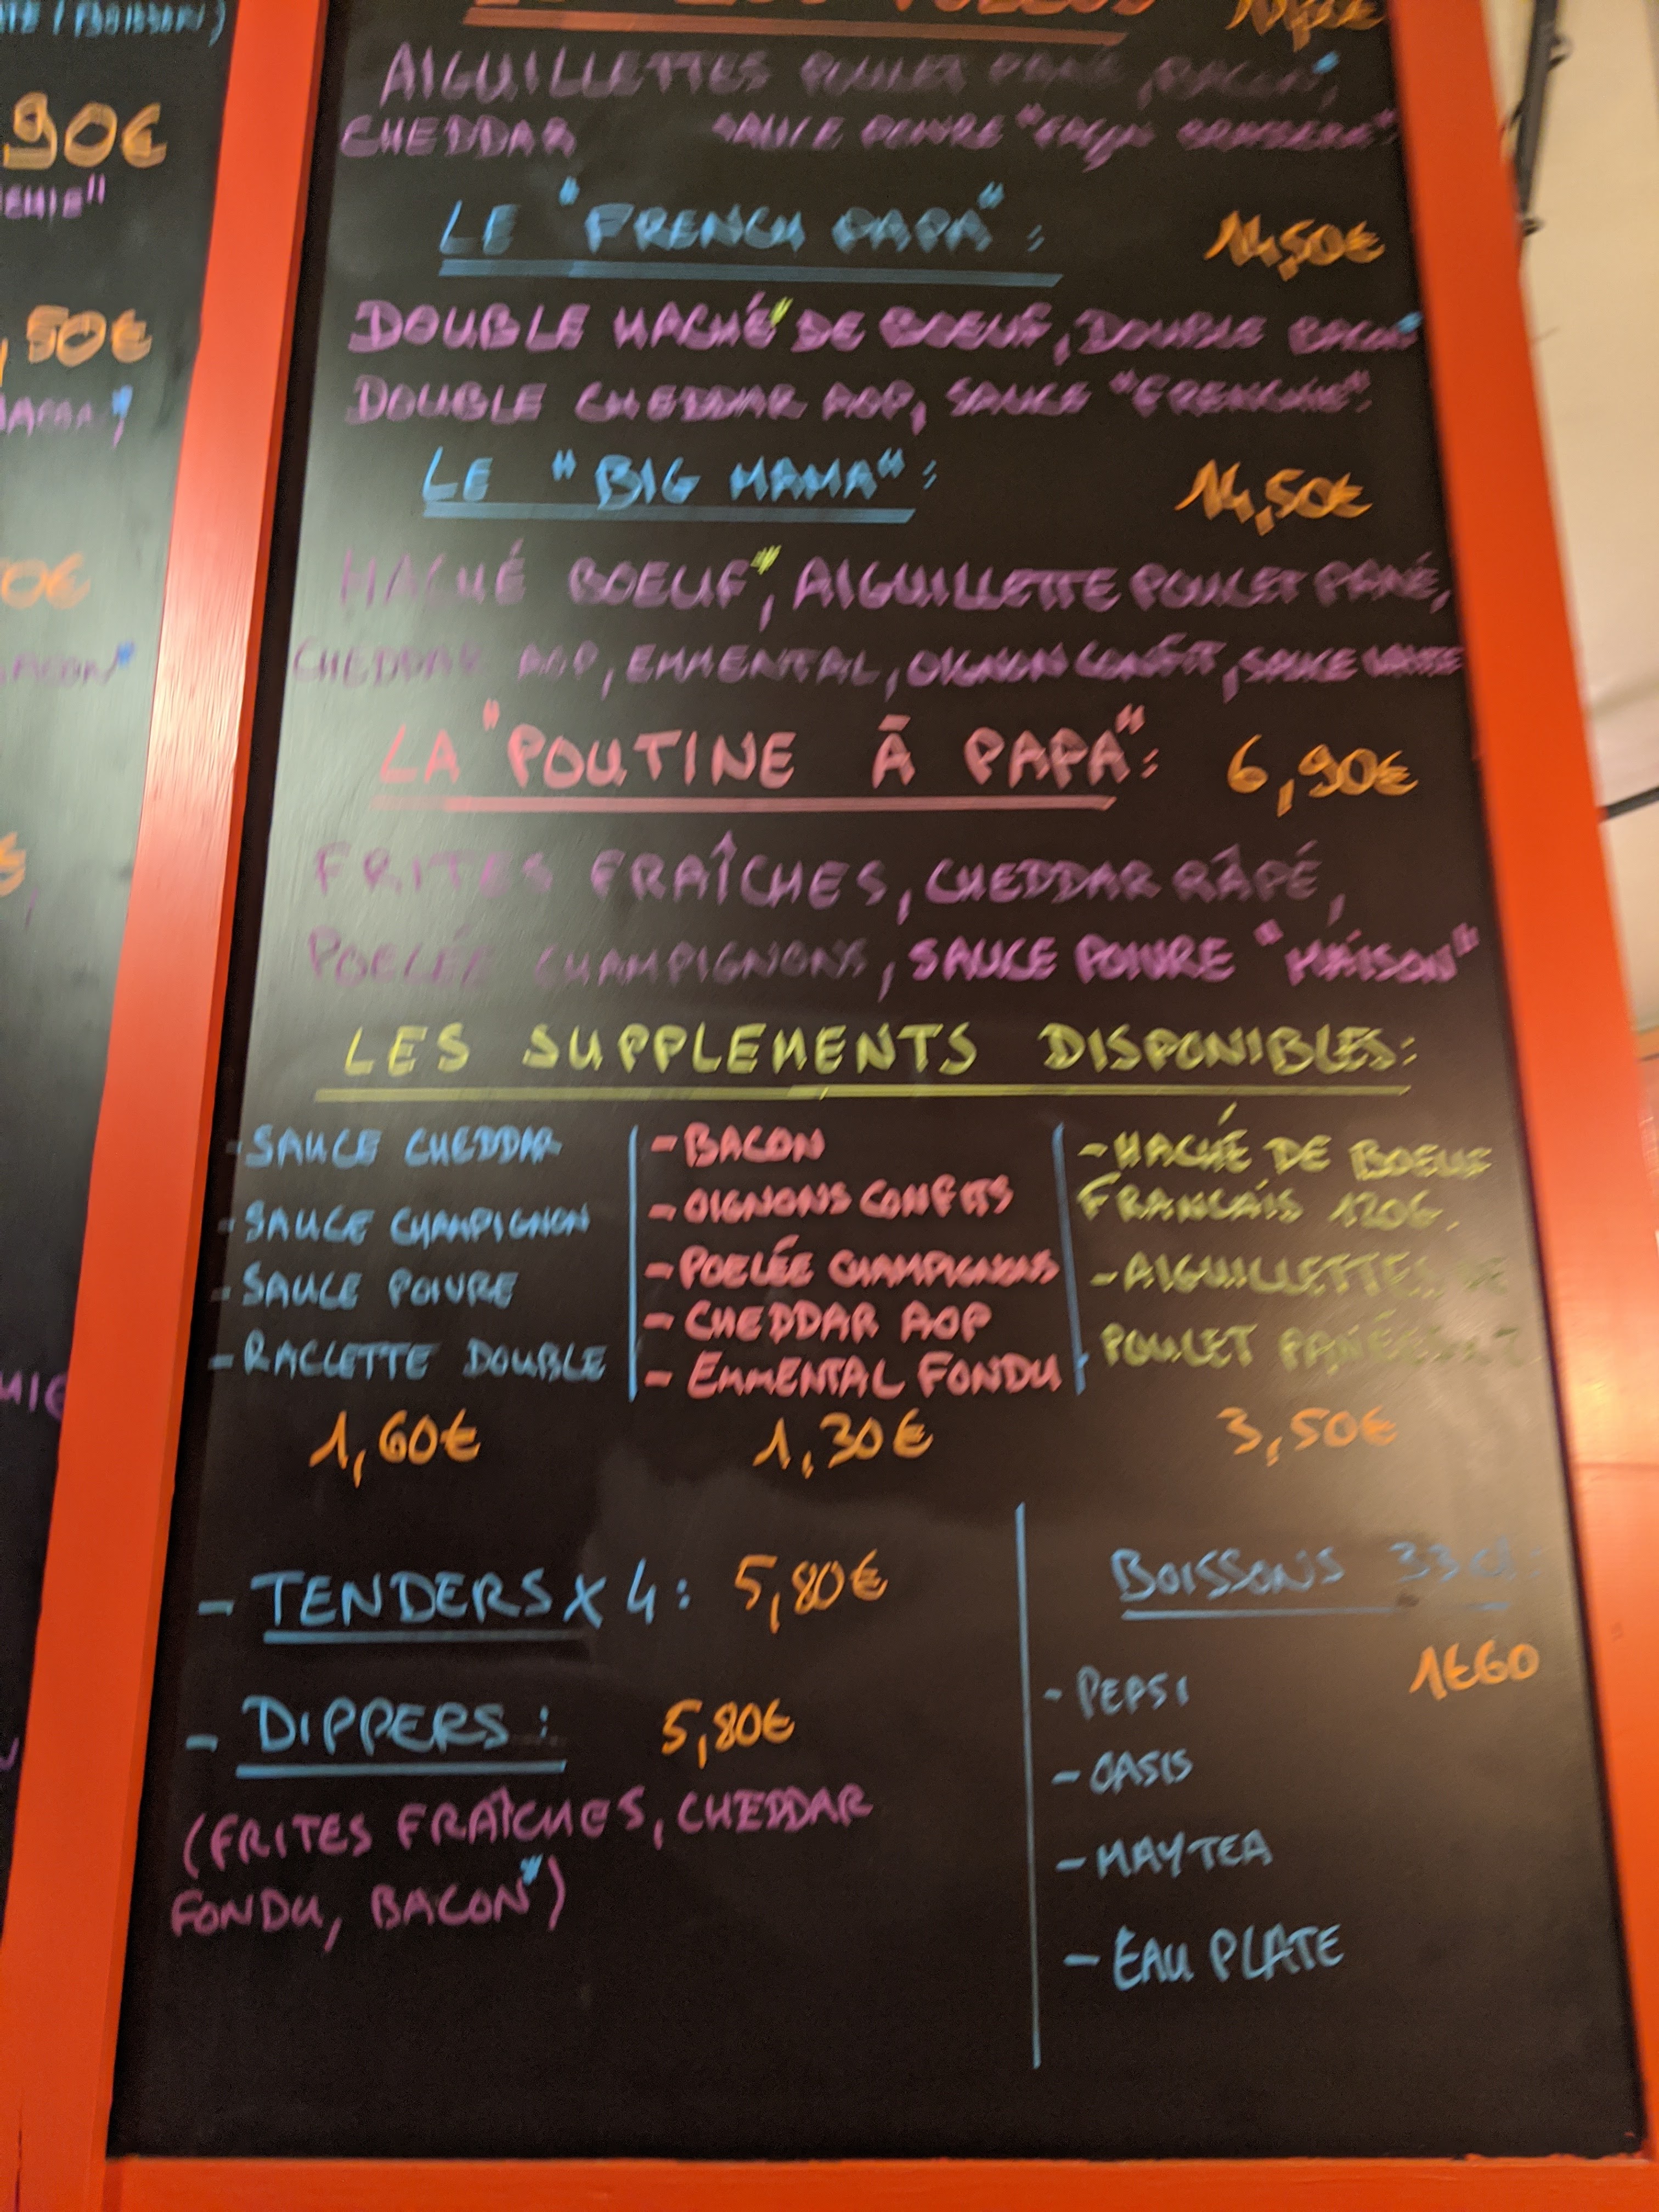 90€
50€
AIGUILLETTES POULET PANÉ, BACON*,
CHEDDAR SAUCE POIVRE "FAÇON
LE "FRENCH PAPA": 14,50€
DOUBLE HACHÉ* DE BOEUF, DOUBLE BACON*
DOUBLE CHEDDAR AOP, SAUCE "FRENCHIE".
LE "BIG MAMA": 14,50€
HACHÉ BOEUF*, AIGUILLETTE POULET PANÉ,
CHEDDAR AOP, EMMENTAL, OIGNON CONFIT, SAUCE
LA "POUTINE À PAPA": 6,90€
FRITES FRAÎCHES, CHEDDAR RÂPÉ,
POELÉE CHAMPIGNONS, SAUCE POIVRE "MAISON"
LES SUPPLEMENTS DISPONIBLES:
- SAUCE CHEDDAR
- SAUCE CHAMPIGNON
- SAUCE POIVRE
- RACLETTE DOUBLE
1,60€
- BACON
- OIGNONS CONFITS
- POELÉE CHAMPIGNONS
- CHEDDAR AOP
- EMMENTAL FONDU
1,30€
- HACHÉ DE BOEUF
FRANCAIS 120G.
- AIGUILLETTES DE
POULET PANÉES
3,50€
- TENDERS X 4: 5,80€
- DIPPERS: 5,80€
(FRITES FRAÎCHES, CHEDDAR
FONDU, BACON*)
BOISSONS 33cl:
1€60
- PEPSI
- OASIS
- MAYTEA
- EAU PLATE